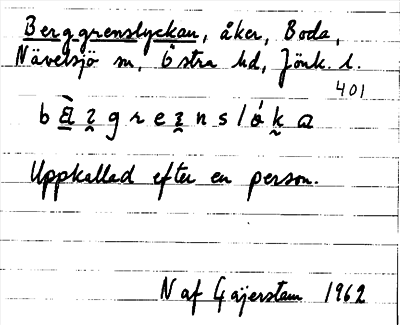 Berggrenslyckan, åker, Boda,
Nävelsjö sn, Östra hd, Jönk. l.
401
Uppkallad efter en person.
N af Gäjerstam 1962